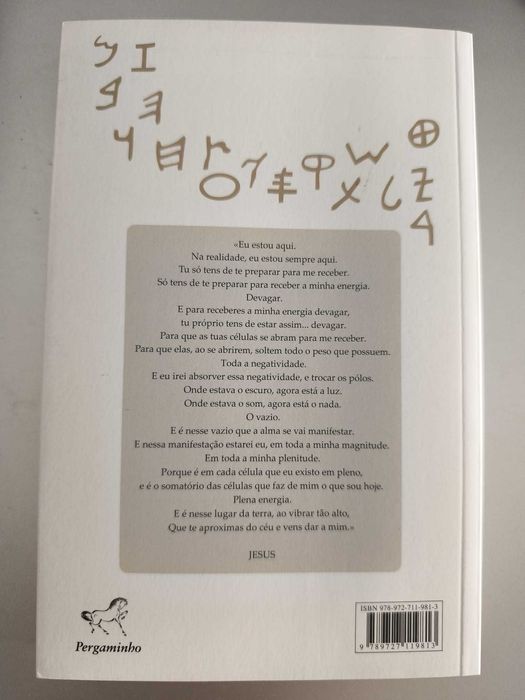 «Eu estou aqui.
Na realidade, eu estou sempre aqui.
Tu só tens de te preparar para me receber.
Só tens de te preparar para receber a minha energia.
Devagar.
E para receberes a minha energia devagar,
tu próprio tens de estar assim... devagar.
Para que as tuas células se abram para me receber.
Para que elas, ao se abrirem, soltem todo o peso que possuem.
Toda a negatividade.
E eu irei absorver essa negatividade, e trocar os pólos.
Onde estava o escuro, agora está a luz.
Onde estava o som, agora está o nada.
O vazio.
E é nesse vazio que a alma se vai manifestar.
E nessa manifestação estarei eu, em toda a minha magnitude.
Em toda a minha plenitude.
Porque é em cada célula que eu existo em pleno,
e é o somatório das células que faz de mim o que sou hoje.
Plena energia.
E é nesse lugar da terra, ao vibrar tão alto,
Que te aproximas do céu e vens dar a mim.»
JESUS
Pergaminho
ISBN 978-972-711-981-3
9 789727 119813